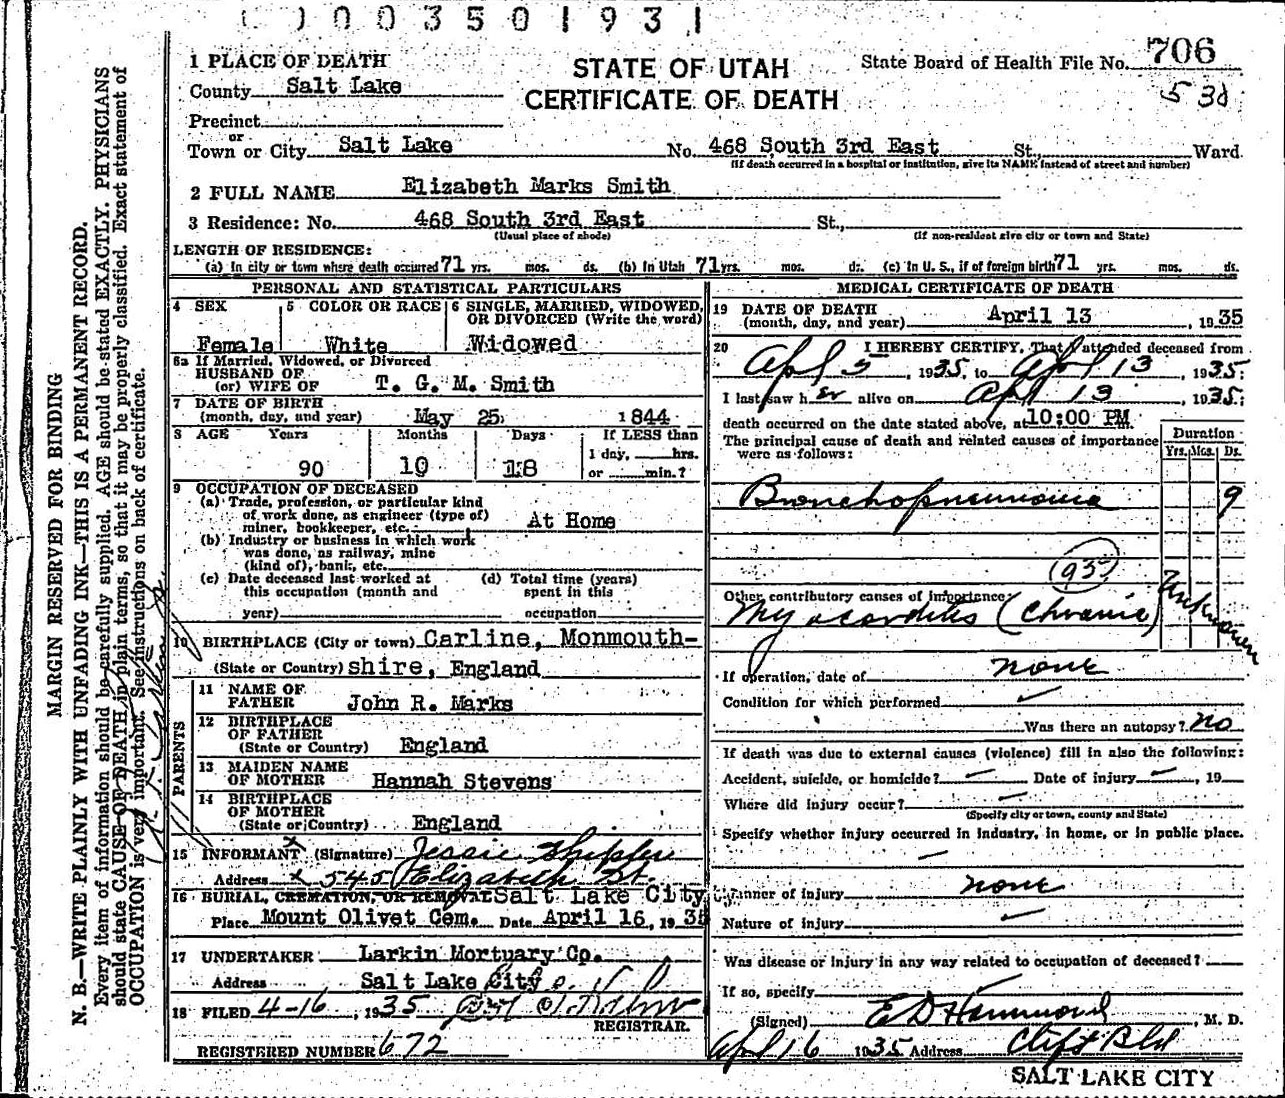 003501931
1 PLACE OF DEATH
County Salt Lake
Precinct
or
Town or City Salt Lake No. 468 South 3rd East St., Ward.
(If death occurred in a hospital or institution, give its NAME instead of street and number)
STATE OF UTAH
CERTIFICATE OF DEATH
State Board of Health File No. 706
530
2 FULL NAME Elizabeth Marks Smith
3 Residence: No. 468 South 3rd East St.,
(Usual place of abode) (If non-resident give city or town and State)
LENGTH OF RESIDENCE:
(a) In city or town where death occurred 71 yrs. mos. ds. (b) In Utah 71 yrs. mos. ds. (c) In U. S., if of foreign birth 71 yrs. mos. ds.
PERSONAL AND STATISTICAL PARTICULARS
4 SEX
Female
5 COLOR OR RACE
White
6 SINGLE, MARRIED, WIDOWED,
OR DIVORCED (Write the word)
Widowed
6a If Married, Widowed, or Divorced
HUSBAND OF
(or) WIFE OF T. G. M. Smith
7 DATE OF BIRTH
(month, day, and year) May 25, 1844
8 AGE Years Months Days If LESS than
1 day, hrs.
90 10 18 or min.?
9 OCCUPATION OF DECEASED
(a) Trade, profession, or particular kind
of work done, as engineer (type of)
miner, bookkeeper, etc. At Home
(b) Industry or business in which work
was done, as railway, mine
(kind of), bank, etc.
(c) Date deceased last worked at
this occupation (month and
year)
(d) Total time (years)
spent in this
occupation
10 BIRTHPLACE (City or town) Carline, Monmouth-
(State or Country) shire, England
PARENTS
11 NAME OF
FATHER John R. Marks
12 BIRTHPLACE
OF FATHER
(State or Country) England
13 MAIDEN NAME
OF MOTHER Hannah Stevens
14 BIRTHPLACE
OF MOTHER
(State or Country) England
15 INFORMANT (Signature) Jessie Shipler
Address x 545 Elizabeth St.
16 BURIAL, CREMATION, OR REMOVAL Salt Lake City
Place Mount Olivet Cem. Date April 16, 1935
17 UNDERTAKER Larkin Mortuary Co.
Address Salt Lake City
18 FILED 4-16, 1935
REGISTRAR.
REGISTERED NUMBER 672
MEDICAL CERTIFICATE OF DEATH
19 DATE OF DEATH
(month, day, and year) April 13, 1935
20 I HEREBY CERTIFY, That I attended deceased from
Apl 5, 1935, to Apl 13, 1935;
I last saw her alive on Apl 13, 1935;
death occurred on the date stated above, at 10:00 PM m.
The principal cause of death and related causes of importance
were as follows:
Duration
Yrs. Mos. Ds.
Bronchopneumonia 9
Other contributory causes of importance:
Myocarditis (Chronic) Unknown
If operation, date of none
Condition for which performed
Was there an autopsy? no
If death was due to external causes (violence) fill in also the following:
Accident, suicide, or homicide? Date of injury , 19
Where did injury occur?
(Specify city or town, county and State)
Specify whether injury occurred in industry, in home, or in public place.
Manner of injury none
Nature of injury
Was disease or injury in any way related to occupation of deceased?
If so, specify
(Signed) E D Hammond, M. D.
Apl 16 1935 Address Clift Bld
SALT LAKE CITY
MARGIN RESERVED FOR BINDING
N. B.—WRITE PLAINLY WITH UNFADING INK—THIS IS A PERMANENT RECORD.
Every item of information should be carefully supplied. AGE should be stated EXACTLY. PHYSICIANS
should state CAUSE OF DEATH in plain terms, so that it may be properly classified. Exact statement of
OCCUPATION is very important. See instructions on back of certificate.